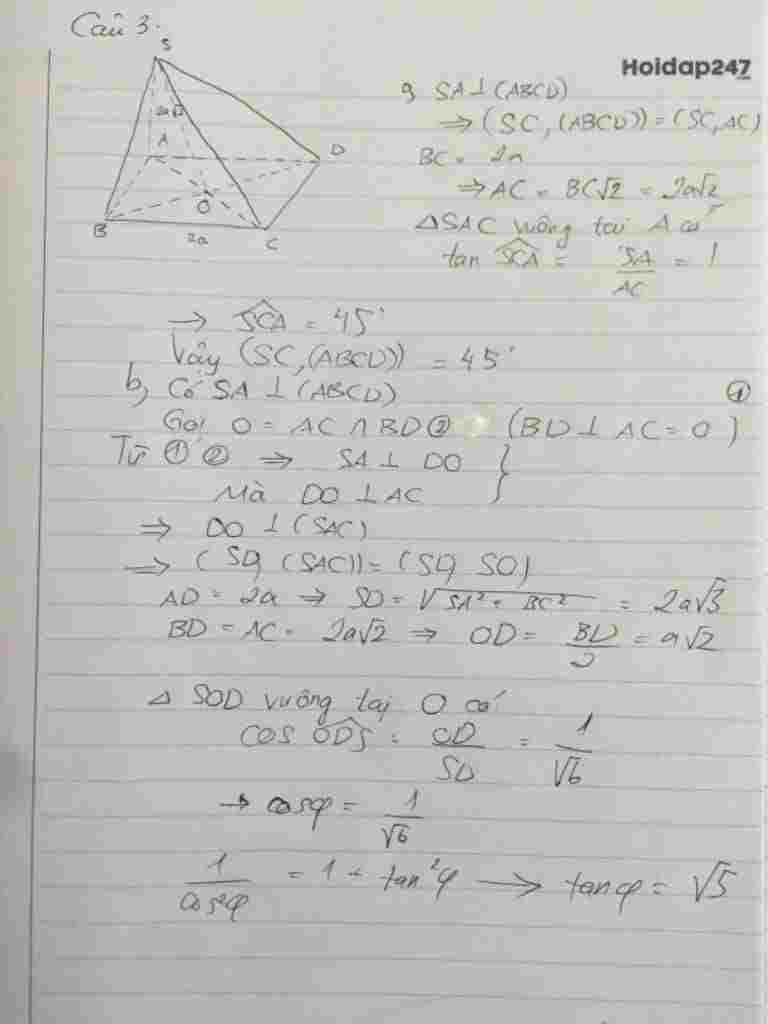 Câu 3.
Hoidap247
S
2a√2
A
D
B
O
C
2a
a, SA ⊥ (ABCD)
⇒ (SC, (ABCD)) = (SC, AC)
BC = 2a
⇒ AC = BC√2 = 2a√2
△SAC vuông tại A có
tan SCA = SA/AC = 1
→ SCA = 45°
Vậy (SC, (ABCD)) = 45°
b, Có SA ⊥ (ABCD) ①
Gọi O = AC ∩ BD ② (BD ⊥ AC = O)
Từ ① ② ⇒ SA ⊥ DO }
Mà DO ⊥ AC
⇒ DO ⊥ (SAC)
⇒ (SD, (SAC)) = (SD, SO)
AD = 2a ⇒ SD = √SA² + BC² = 2a√3
BD = AC = 2a√2 ⇒ OD = BD/2 = a√2
△ SOD vuông tại O có
cos ODS = OD/SD = 1/√6
→ cosφ = 1/√6
1/cos²φ = 1 + tan²φ → tanφ = √5